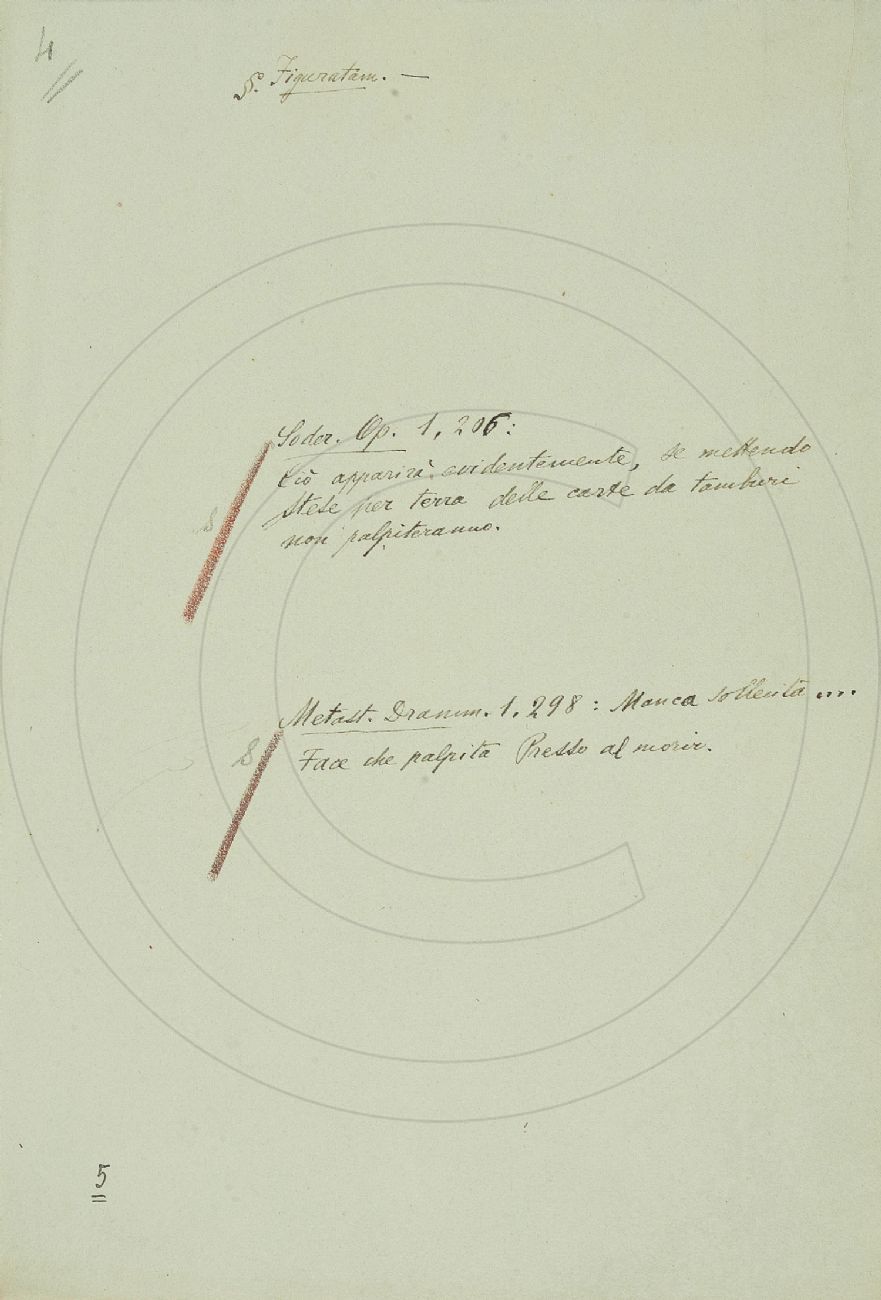 4
§. Figuratam. —
Soder. Op. 1, 206:
Ciò apparirà evidentemente, se mettendo
stese per terra delle carte da tamburi
non palpiteranno.
S
Metast. Dramm. 1. 298: Manca sollecita ...
Face che palpita Presso al morir.
S
5